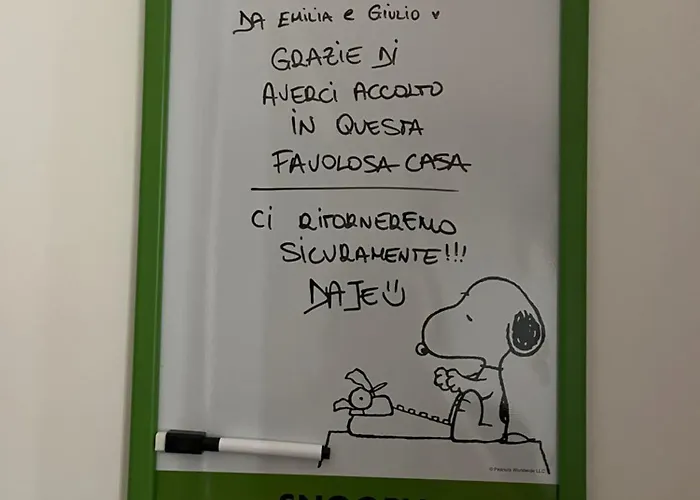 DA EMILIA e GIULIO ♥
GRAZIE DI
AVERCI ACCOLTO
IN QUESTA
FAVOLOSA CASA
Ci RITORNEREMO
SICURAMENTE!!!
DAJE
© Peanuts Worldwide LLC
SNOOPY